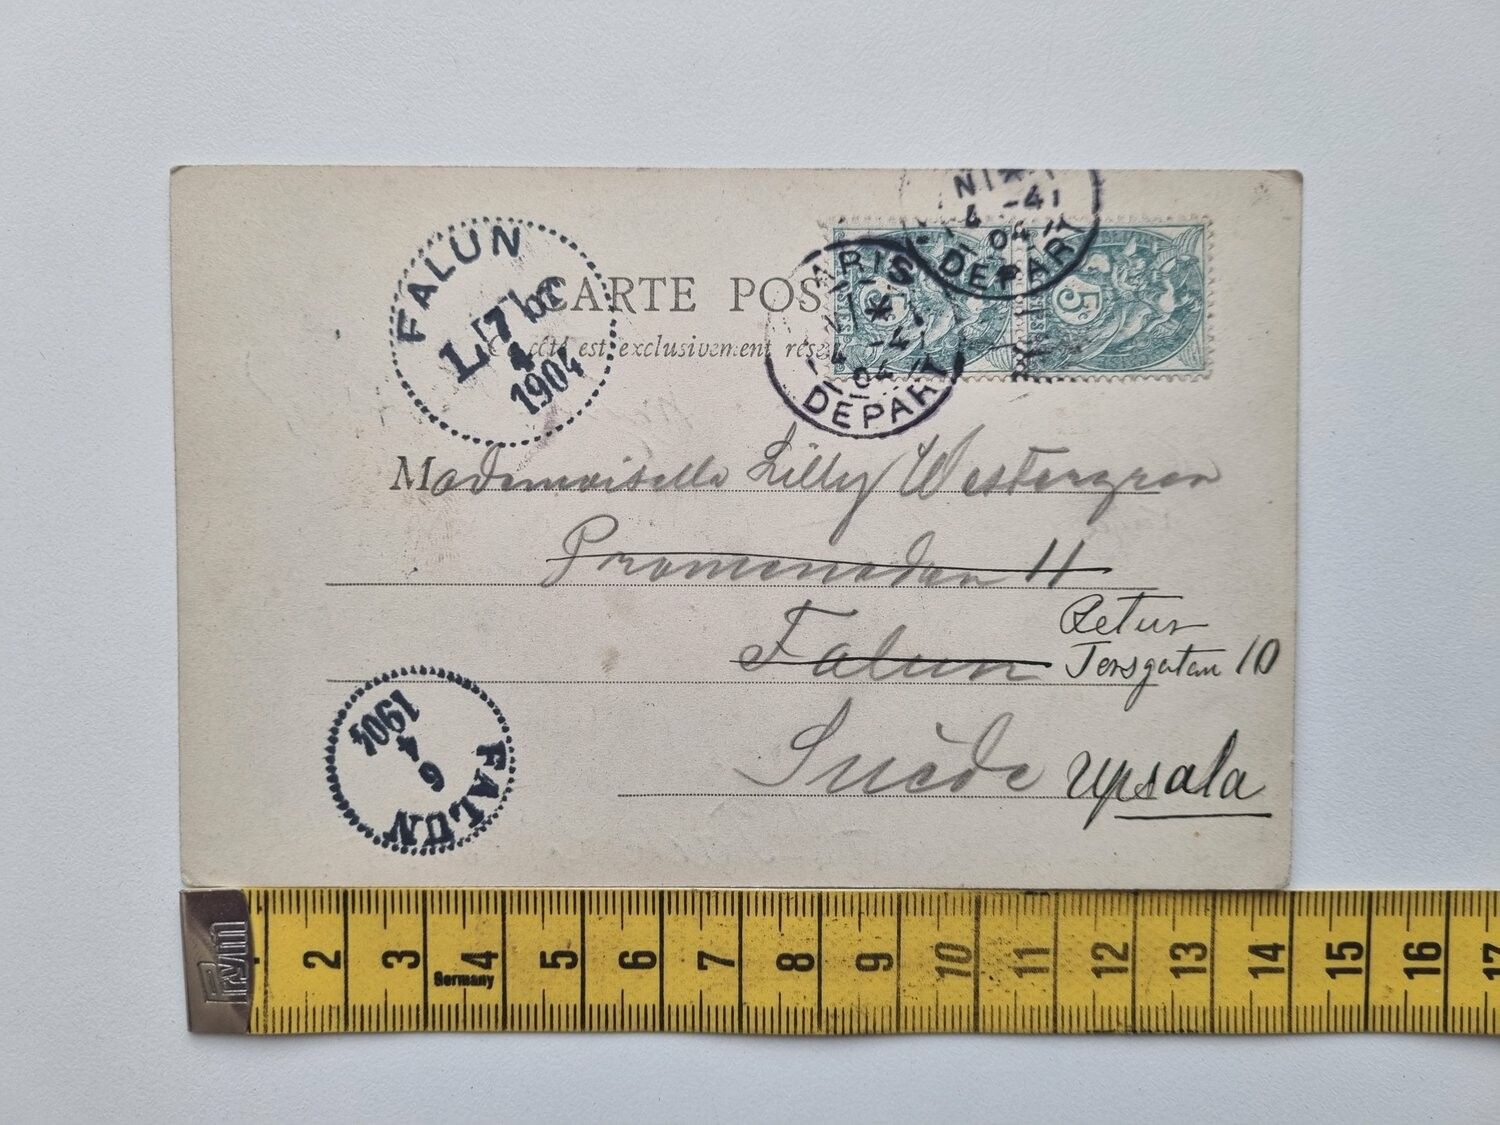 FALUN
7
4
1904
CARTE POS
côté est exclusivement rése
PARIS
4 -4
04
DEPART
4 -4
04
DEPART
5c
5c
Mademoiselle Lilly Westergren
Promenaden 11
Falun
Retur
Torsgatan 10
Suède
Upsala
FALUN
6
4
1904
Prym
2 3 4 5 6 7 8 9 10 11 12 13 14 15 16 17
Germany